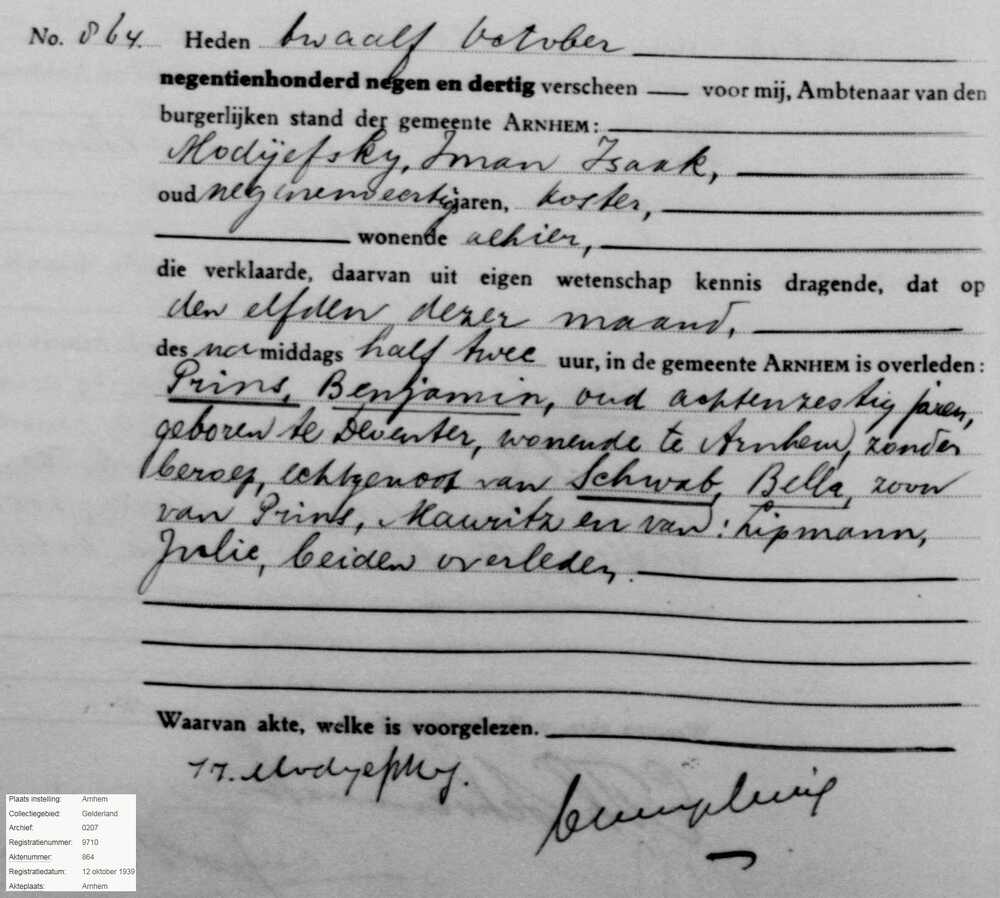 No. 864. Heden twaalf October
negentienhonderd negen en dertig verscheen voor mij, Ambtenaar van den
burgerlijken stand der gemeente ARNHEM:
Modijefsky, Iman Isaak,
oud negenenveertig jaren, koster,
wonende alhier,
die verklaarde, daarvan uit eigen wetenschap kennis dragende, dat op
den elfden dezer maand,
des namiddags half twee uur, in de gemeente ARNHEM is overleden:
Prins, Benjamin, oud achtenzestig jaren,
geboren te Deventer, wonende te Arnhem, zonder
beroep, echtgenoot van Schwab, Bella, zoon
van Prins, Mauritz en van: Lipmann,
Julie, beiden overleden.
Waarvan akte, welke is voorgelezen.
I I. Modijefsky.
Plaats instelling: Arnhem
Collectiegebied: Gelderland
Archief: 0207
Registratienummer: 9710
Aktenummer: 864
Registratiedatum: 12 oktober 1939
Akteplaats: Arnhem